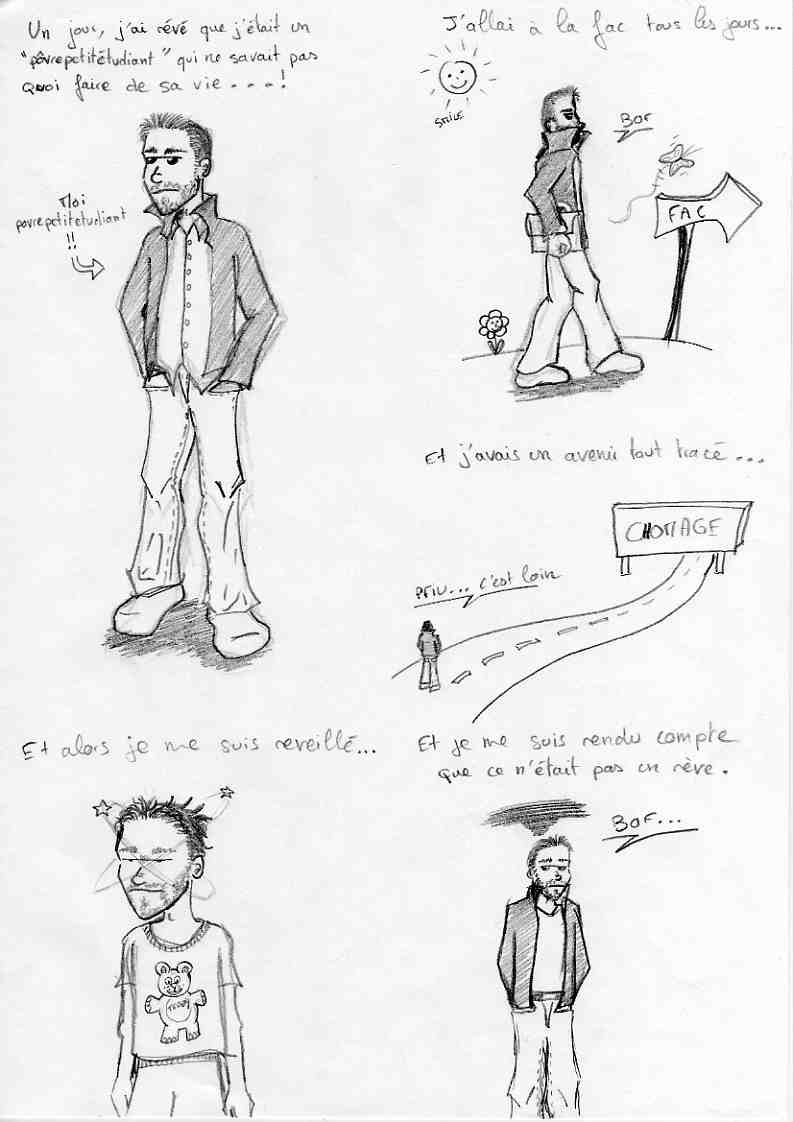 Un jour, j'ai rêvé que j'était un
"pôvrepetitétudiant" qui ne savait pas
quoi faire de sa vie....!
Moi
povrepetitetudiant
!!
J'allai à la fac tous les jours...
SMILE
BOF
FAC
Et j'avais un avenir tout tracé...
CHOMAGE
PFIU... c'est loin
Et alors je me suis reveillé...
TEDDY
Et je me suis rendu compte
que ce n'était pas un rêve.
BOF...